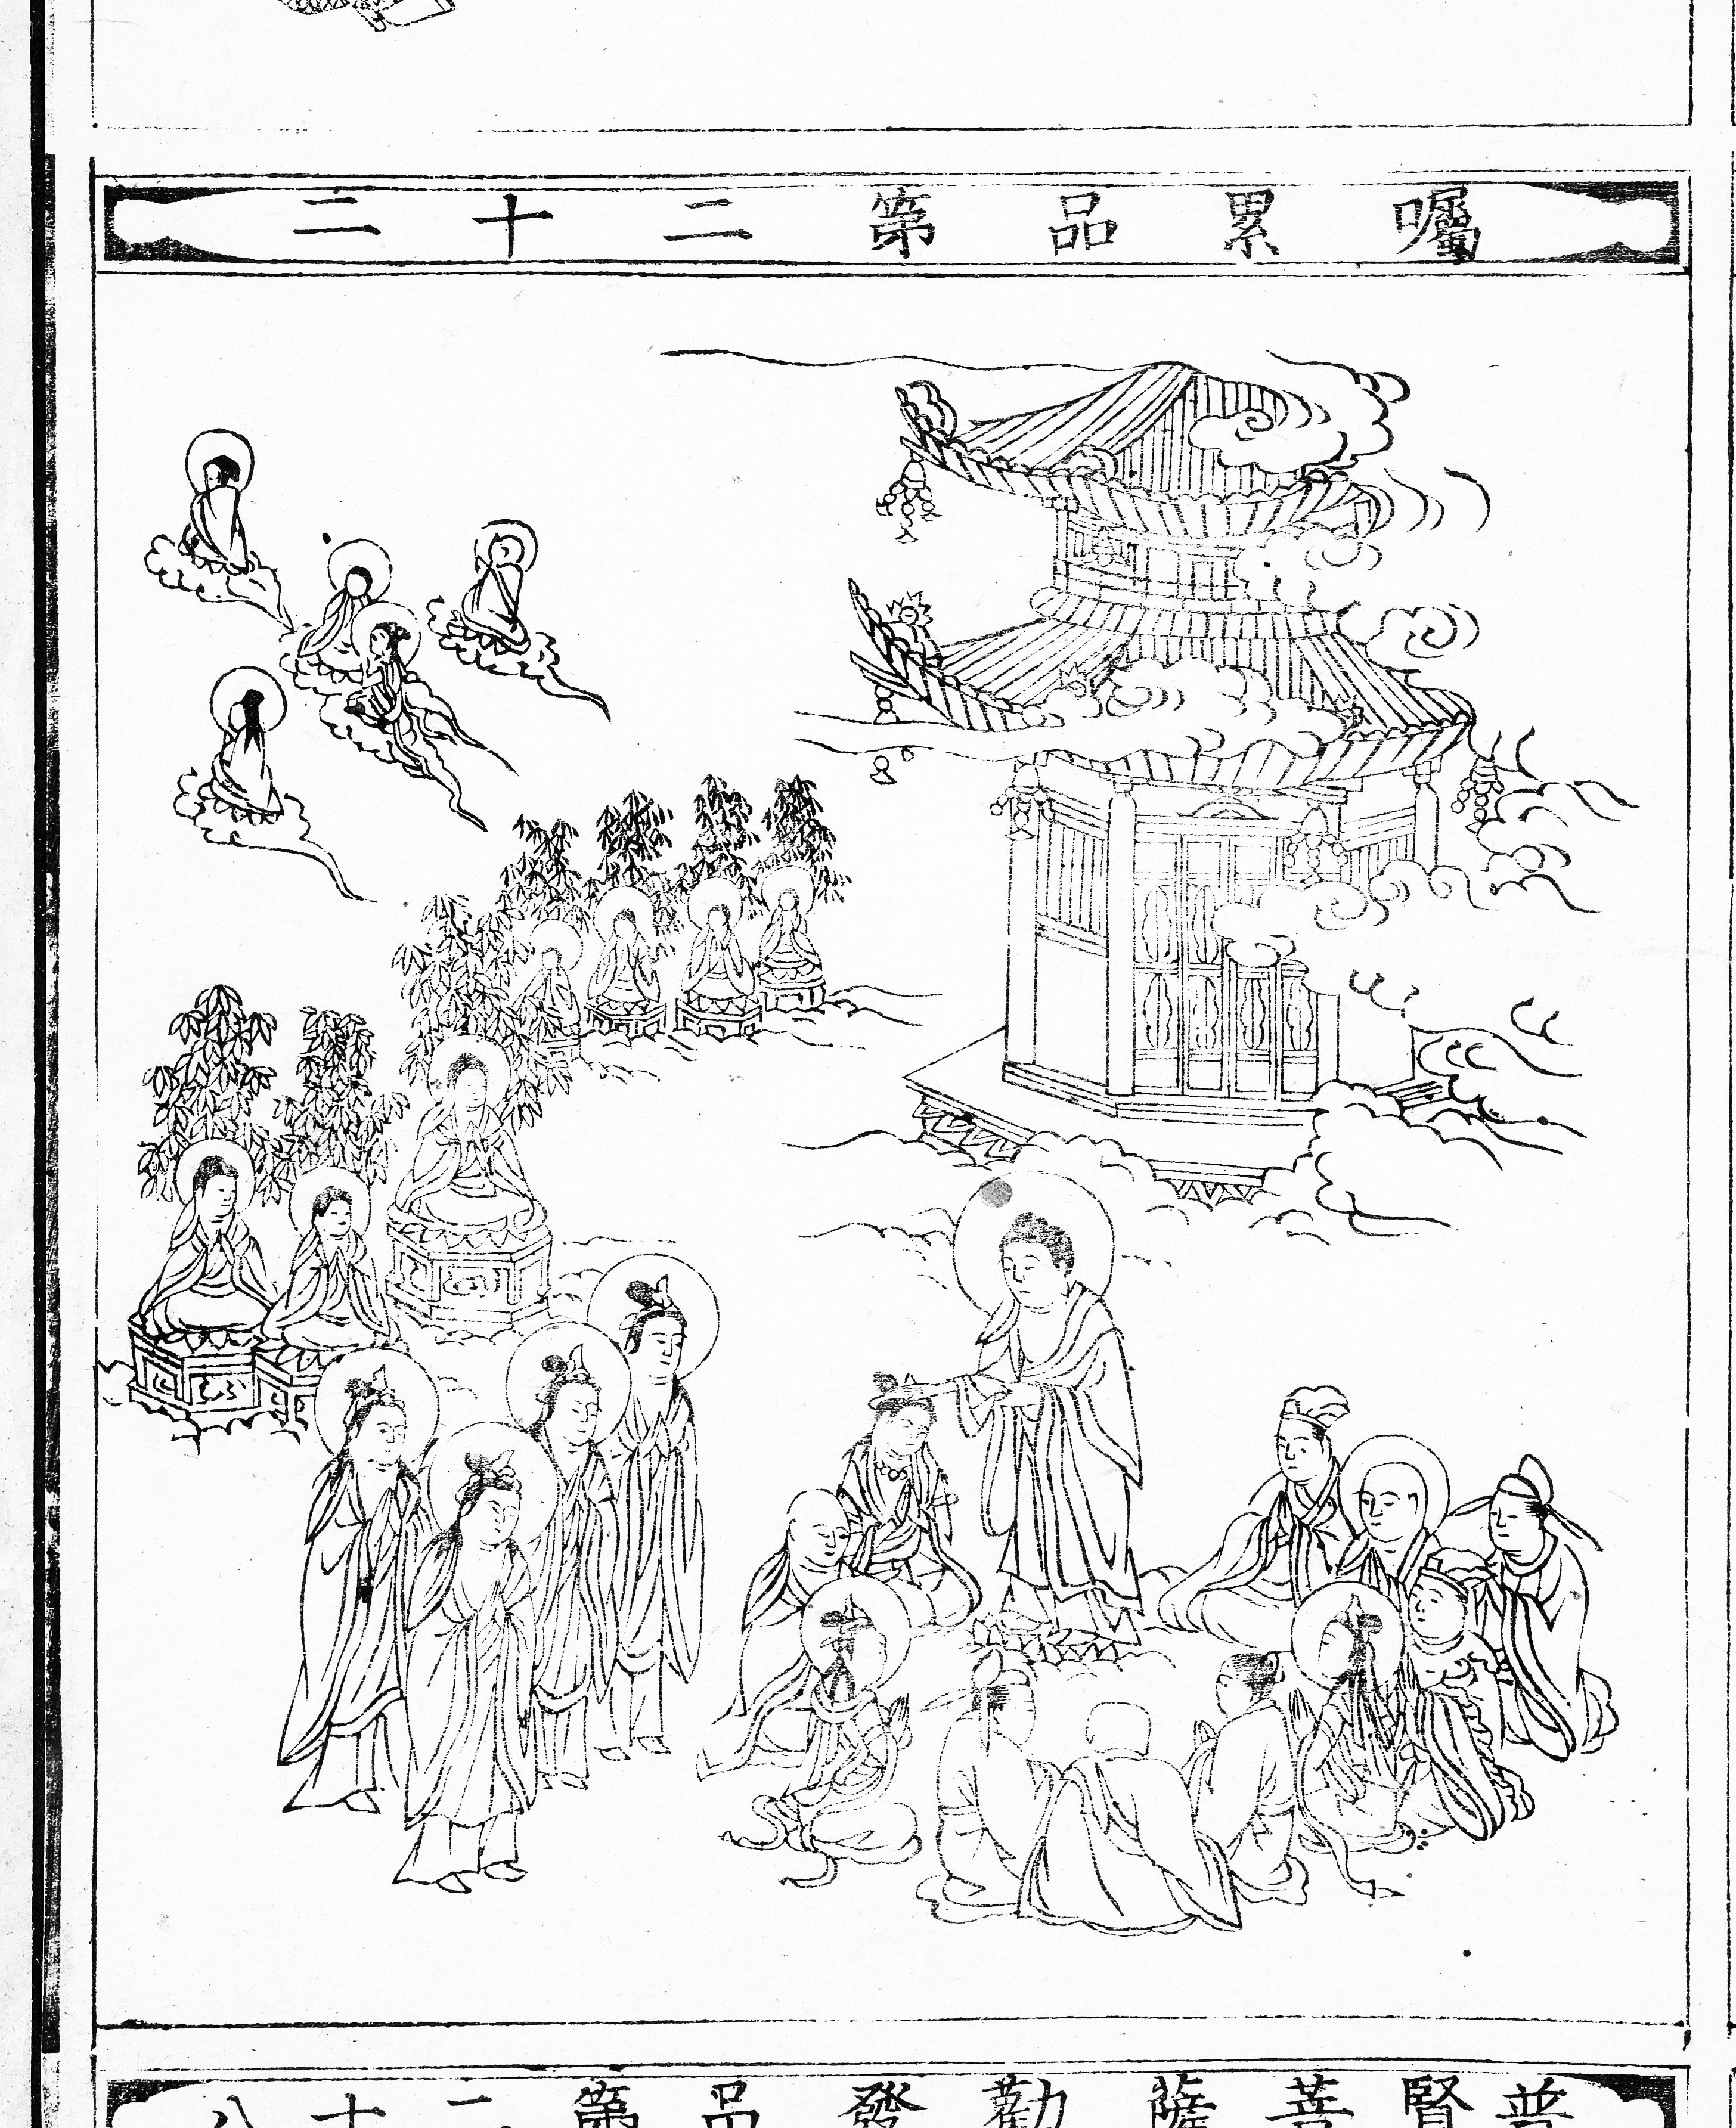 囑累品第二十二
普賢菩薩勸發品第二十八